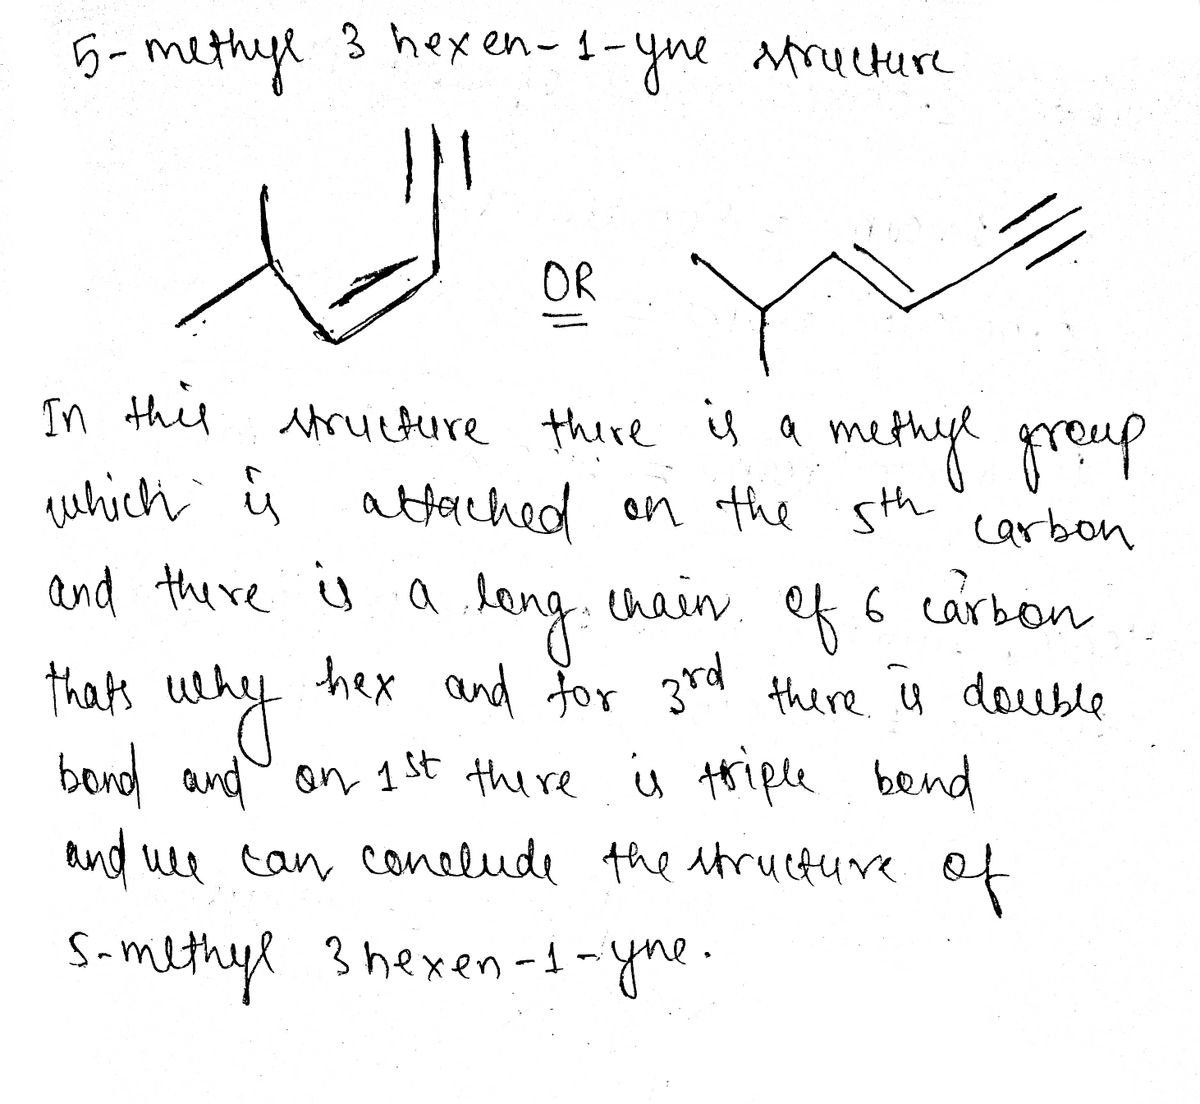 5-methyl 3 hexen-1-yne structure
OR
In this structure there is a methyl group
which is attached on the 5th carbon
and there is a long chain of 6 carbon
thats why hex and for 3rd there is double
bond and on 1st there is triple bond
and we can conclude the structure of
5-methyl 3 hexen-1-yne.